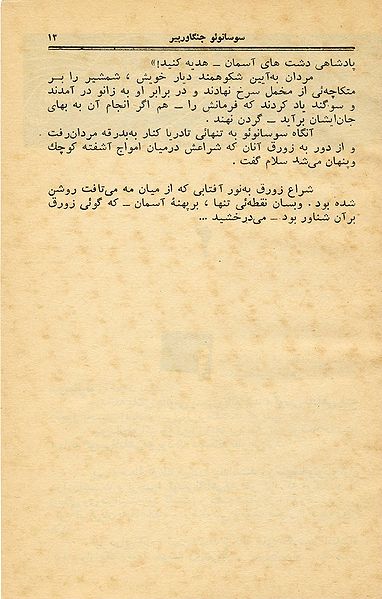 سوسانوئو جنگاورپیر ۱۳
پادشاهی دشت های آسمان ــ هدیه کنید!»
مردان به‌آیین شکوهمند دیار خویش ، شمشیر را بــر
متکاچه‌ئی از مخمل سرخ نهادند و در برابر او به زانو در آمدند
و سوگند یاد کردند که فرمانش را ــ هم اگر انجام آن به بهای
جان‌ایشان برآید ــ گردن نهند .
آنگاه سوسانوئو به تنهائی تادریا کنار به‌بدرقه مردان‌رفت
و از دور به زورق آنان که شراعش درمیان امواج آشفته کوچك
وپنهان می‌شد سلام گفت .
شراع زورق به‌نور آفتابی که از میان مه می‌تافت روشن
شده بود . وبسان نقطه‌ئی تنها ، برپهنهٔ آسمان ــ که گوئی زورق
برآن شناور بود ــ می‌درخشید ...